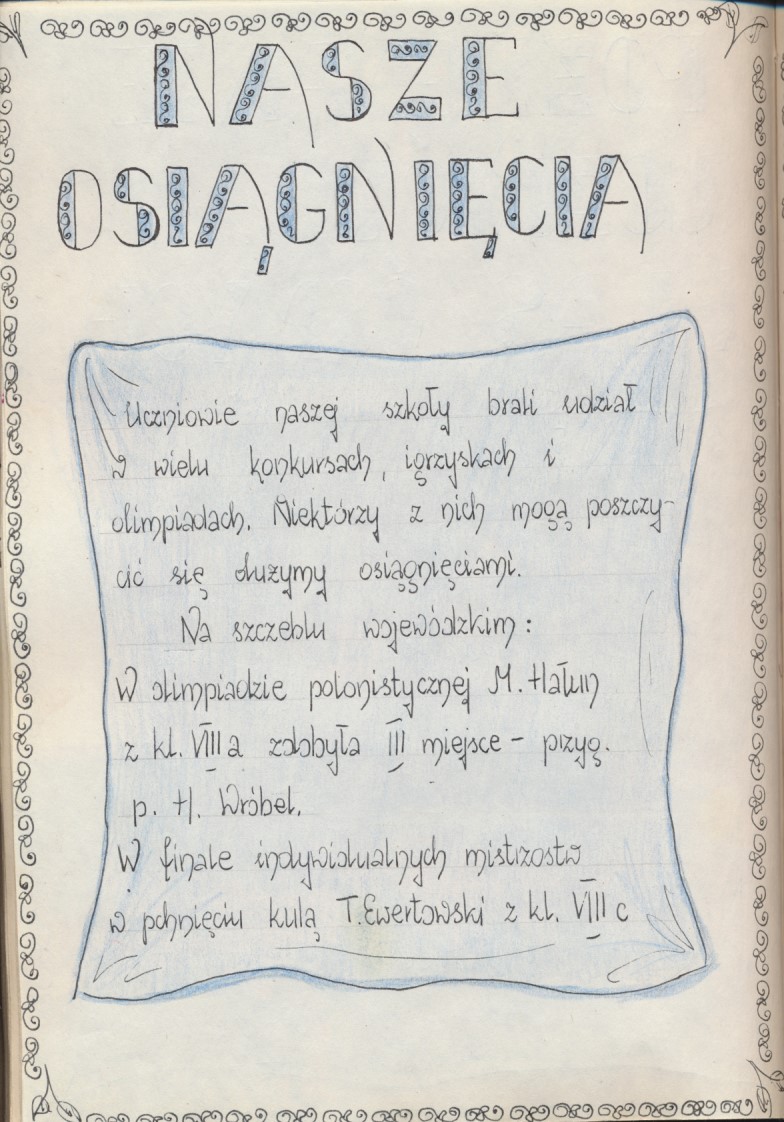 NASZE
OSIĄGNIĘCIA
Uczniowie naszej szkoły brali udział
w wielu konkursach, igrzyskach i
olimpiadach. Niektórzy z nich mogą poszczy-
cić się dużymy osiągnięciami.
Na szczeblu wojewódzkim:
W olimpiadzie polonistycznej M. Hałun
z kl. VIII a zdobyła III miejsce - przyg.
p. H. Wróbel.
W finale indywidualnych mistrzostw
w pchnięciu kulą T. Ewertowski z kl. VIII c